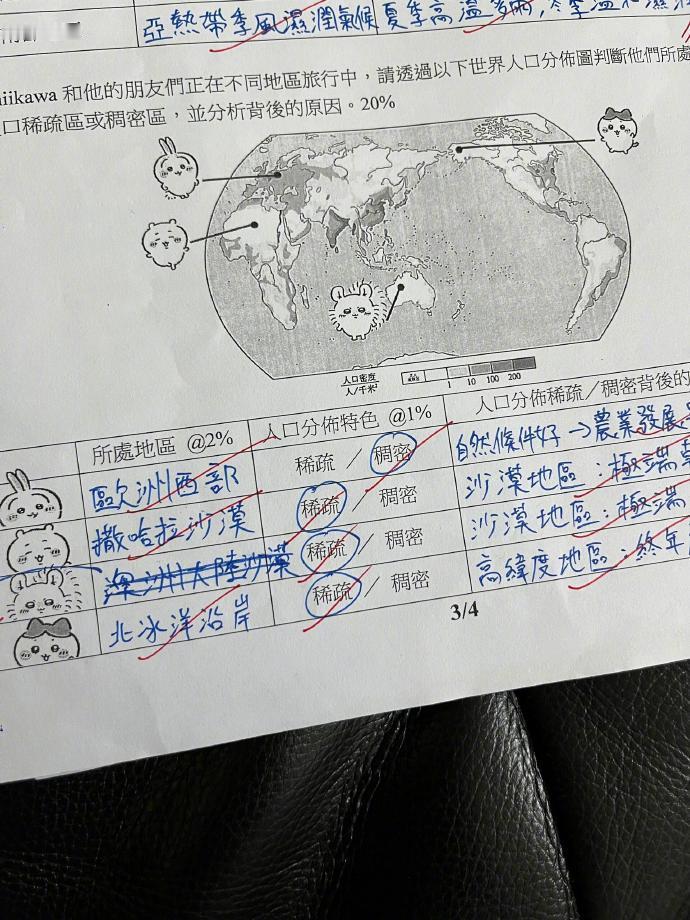 亞熱帶季風濕潤氣候 夏季高溫多雨,冬季溫和
iikawa 和他的朋友們正在不同地區旅行中,請透過以下世界人口分佈圖判斷他們所處
口稀疏區或稠密區,並分析背後的原因。20%
人口密度
人/千米²
1 10 100 200
所處地區 @2% 人口分佈特色 @1% 人口分佈稀疏/稠密背後的
歐洲西部 稀疏 / 稠密 自然條件好→農業發展
撒哈拉沙漠 稀疏 / 稠密 沙漠地區:極端
澳洲大陸沙漠 稀疏 / 稠密 沙漠地區:極端
北冰洋沿岸 稀疏 / 稠密 高緯度地區:終年
3/4